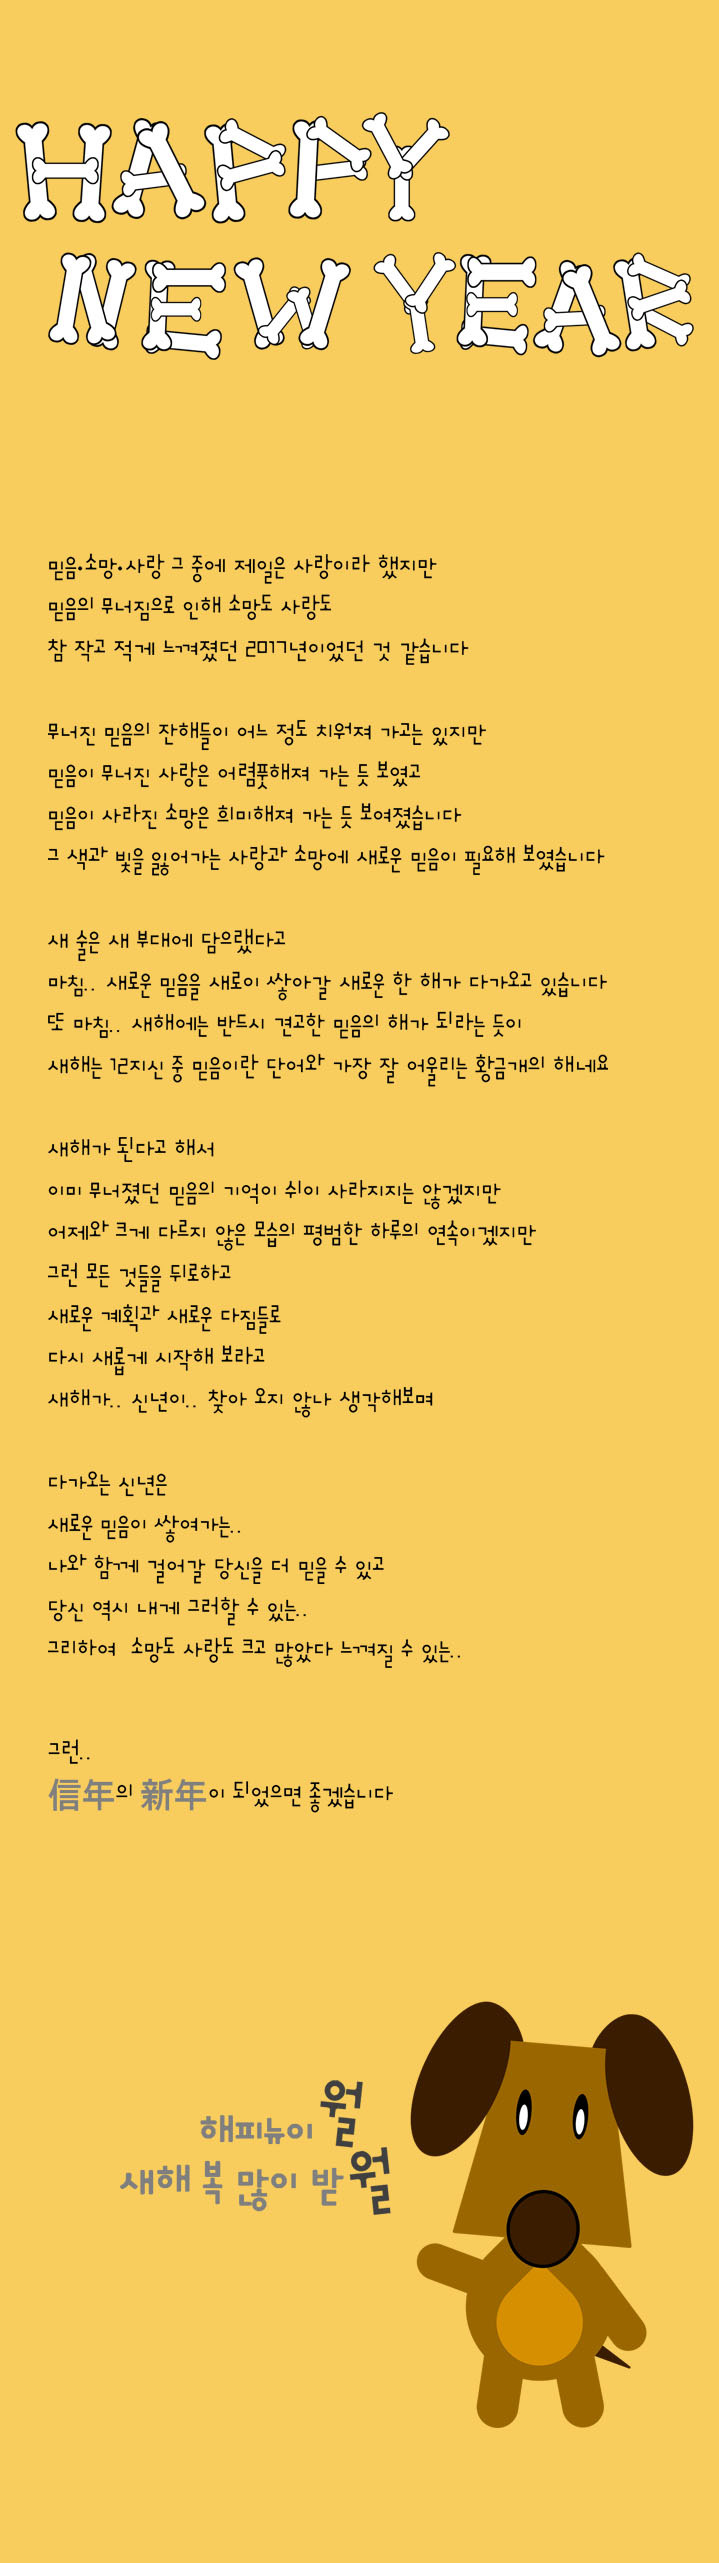 HAPPY
NEW YEAR
믿음·소망·사랑 그 중에 제일은 사랑이라 했지만
믿음의 무너짐으로 인해 소망도 사랑도
참 작고 적게 느껴졌던 2017년이었던 것 같습니다
무너진 믿음의 잔해들이 어느 정도 치워져 가고는 있지만
믿음이 무너진 사랑은 어렴풋해져 가는 듯 보였고
믿음이 사라진 소망은 희미해져 가는 듯 보여졌습니다
그 색과 빛을 잃어가는 사랑과 소망에 새로운 믿음이 필요해 보였습니다
새 술은 새 부대에 담으랬다고
마침.. 새로운 믿음을 새로이 쌓아갈 새로운 한 해가 다가오고 있습니다
또 마침.. 새해에는 반드시 견고한 믿음의 해가 되라는 듯이
새해는 12지신 중 믿음이란 단어와 가장 잘 어울리는 황금개의 해네요
새해가 된다고 해서
이미 무너졌던 믿음의 기억이 쉬이 사라지지는 않겠지만
어제와 크게 다르지 않은 모습의 평범한 하루의 연속이겠지만
그런 모든 것들을 뒤로하고
새로운 계획과 새로운 다짐들로
다시 새롭게 시작해 보라고
새해가.. 신년이.. 찾아 오지 않나 생각해보며
다가오는 신년은
새로운 믿음이 쌓여가는..
나와 함께 걸어갈 당신을 더 믿을 수 있고
당신 역시 내게 그러할 수 있는..
그리하여 소망도 사랑도 크고 많았다 느껴질 수 있는..
그런..
信年의 新年이 되었으면 좋겠습니다
해피뉴이월
새해 복 많이 받월